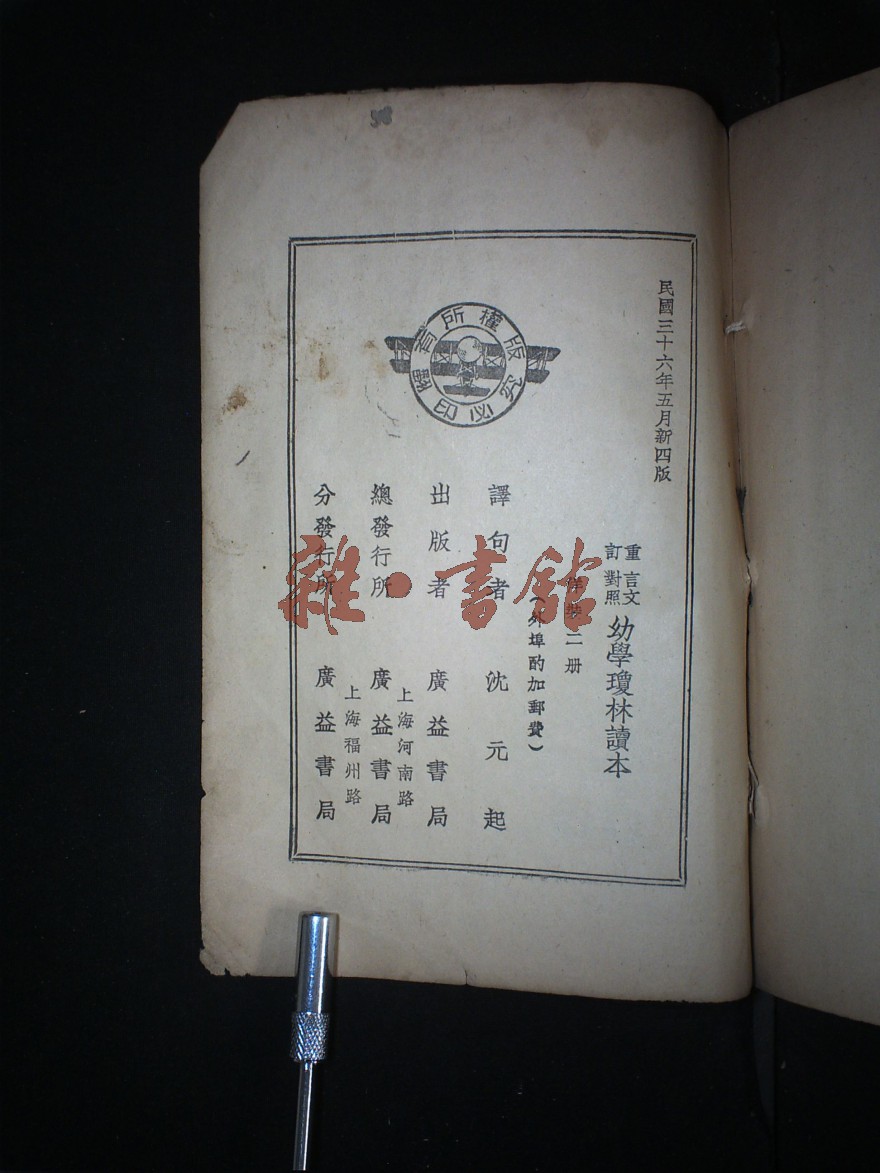 民國三十六年五月新四版
重訂 言文對照 幼學瓊林讀本
洋裝二册
(外埠酌加郵費)
譯句者 沈元起
出版者 廣益書局
上海河南路
總發行所 廣益書局
上海福州路
分發行所 廣益書局
版權所有
翻印必究
雜·書館